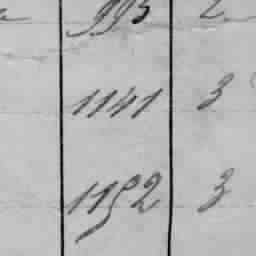 993 2
1141 3
1152 3